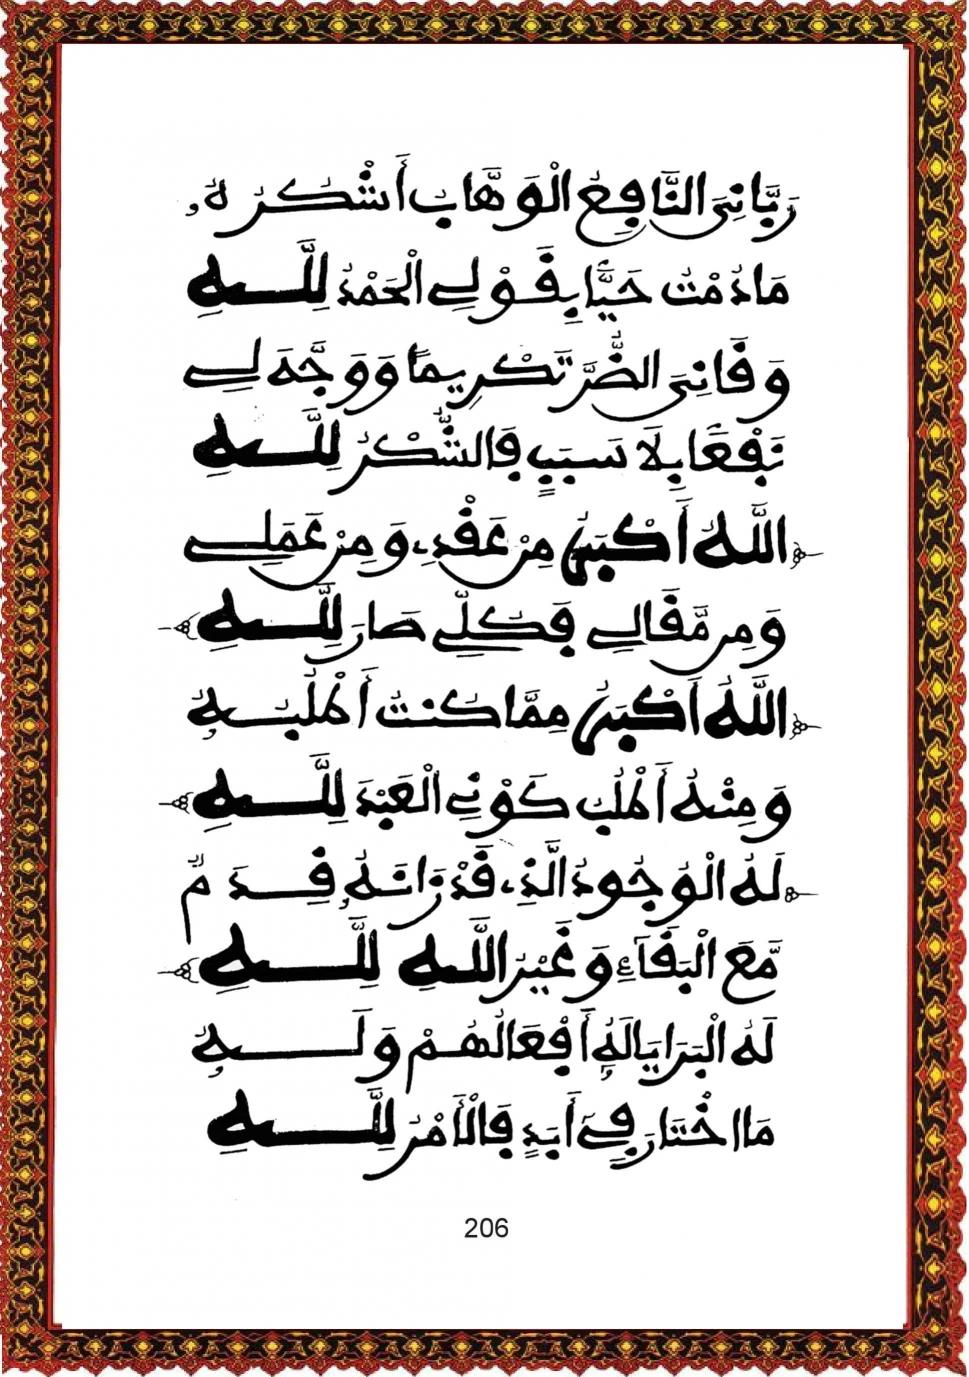 رَبَّانِىَ النَّافِعُ الْوَهَّابُ أَشْكُرُهُ
مَا دُمْتُ حَيًّا بِقَوْلِى الْحَمْدُ لِلَّهِ
وَقَانِىَ الضُّرَّ تَكْرِيمًا وَوَجَّهَ لِى
نَفْعًا بِلَا سَبَبٍ فَالشُّكْرُ لِلَّهِ
اللَّهُ أَكْبَرُ مِنْ عَقْدِى وَمِنْ عَمَلِى
وَمِن مَّقَالِى فَكُلِّى صَارَ لِلَّهِ
اللَّهُ أَكْبَرُ مِمَّا كُنتُ أَطْلُبُهُ
وَمِنْهُ أَطْلُبُ كَوْنِى الْعَبْدَ لِلَّهِ
لَهُ الْوُجُودُ الَّذِى قَدْ زَانَهُ قِدَمٌ
مَّعَ الْبَقَآءِ وَغَيْرُ اللَّهِ لِلَّهِ
لَهُ الْبَرَايَا لَهُ أَفْعَالُهُمْ وَلَهُ
مَا اخْتَارَ فِى أَبَدٍ فَالْأَمْرُ لِلَّهِ
206